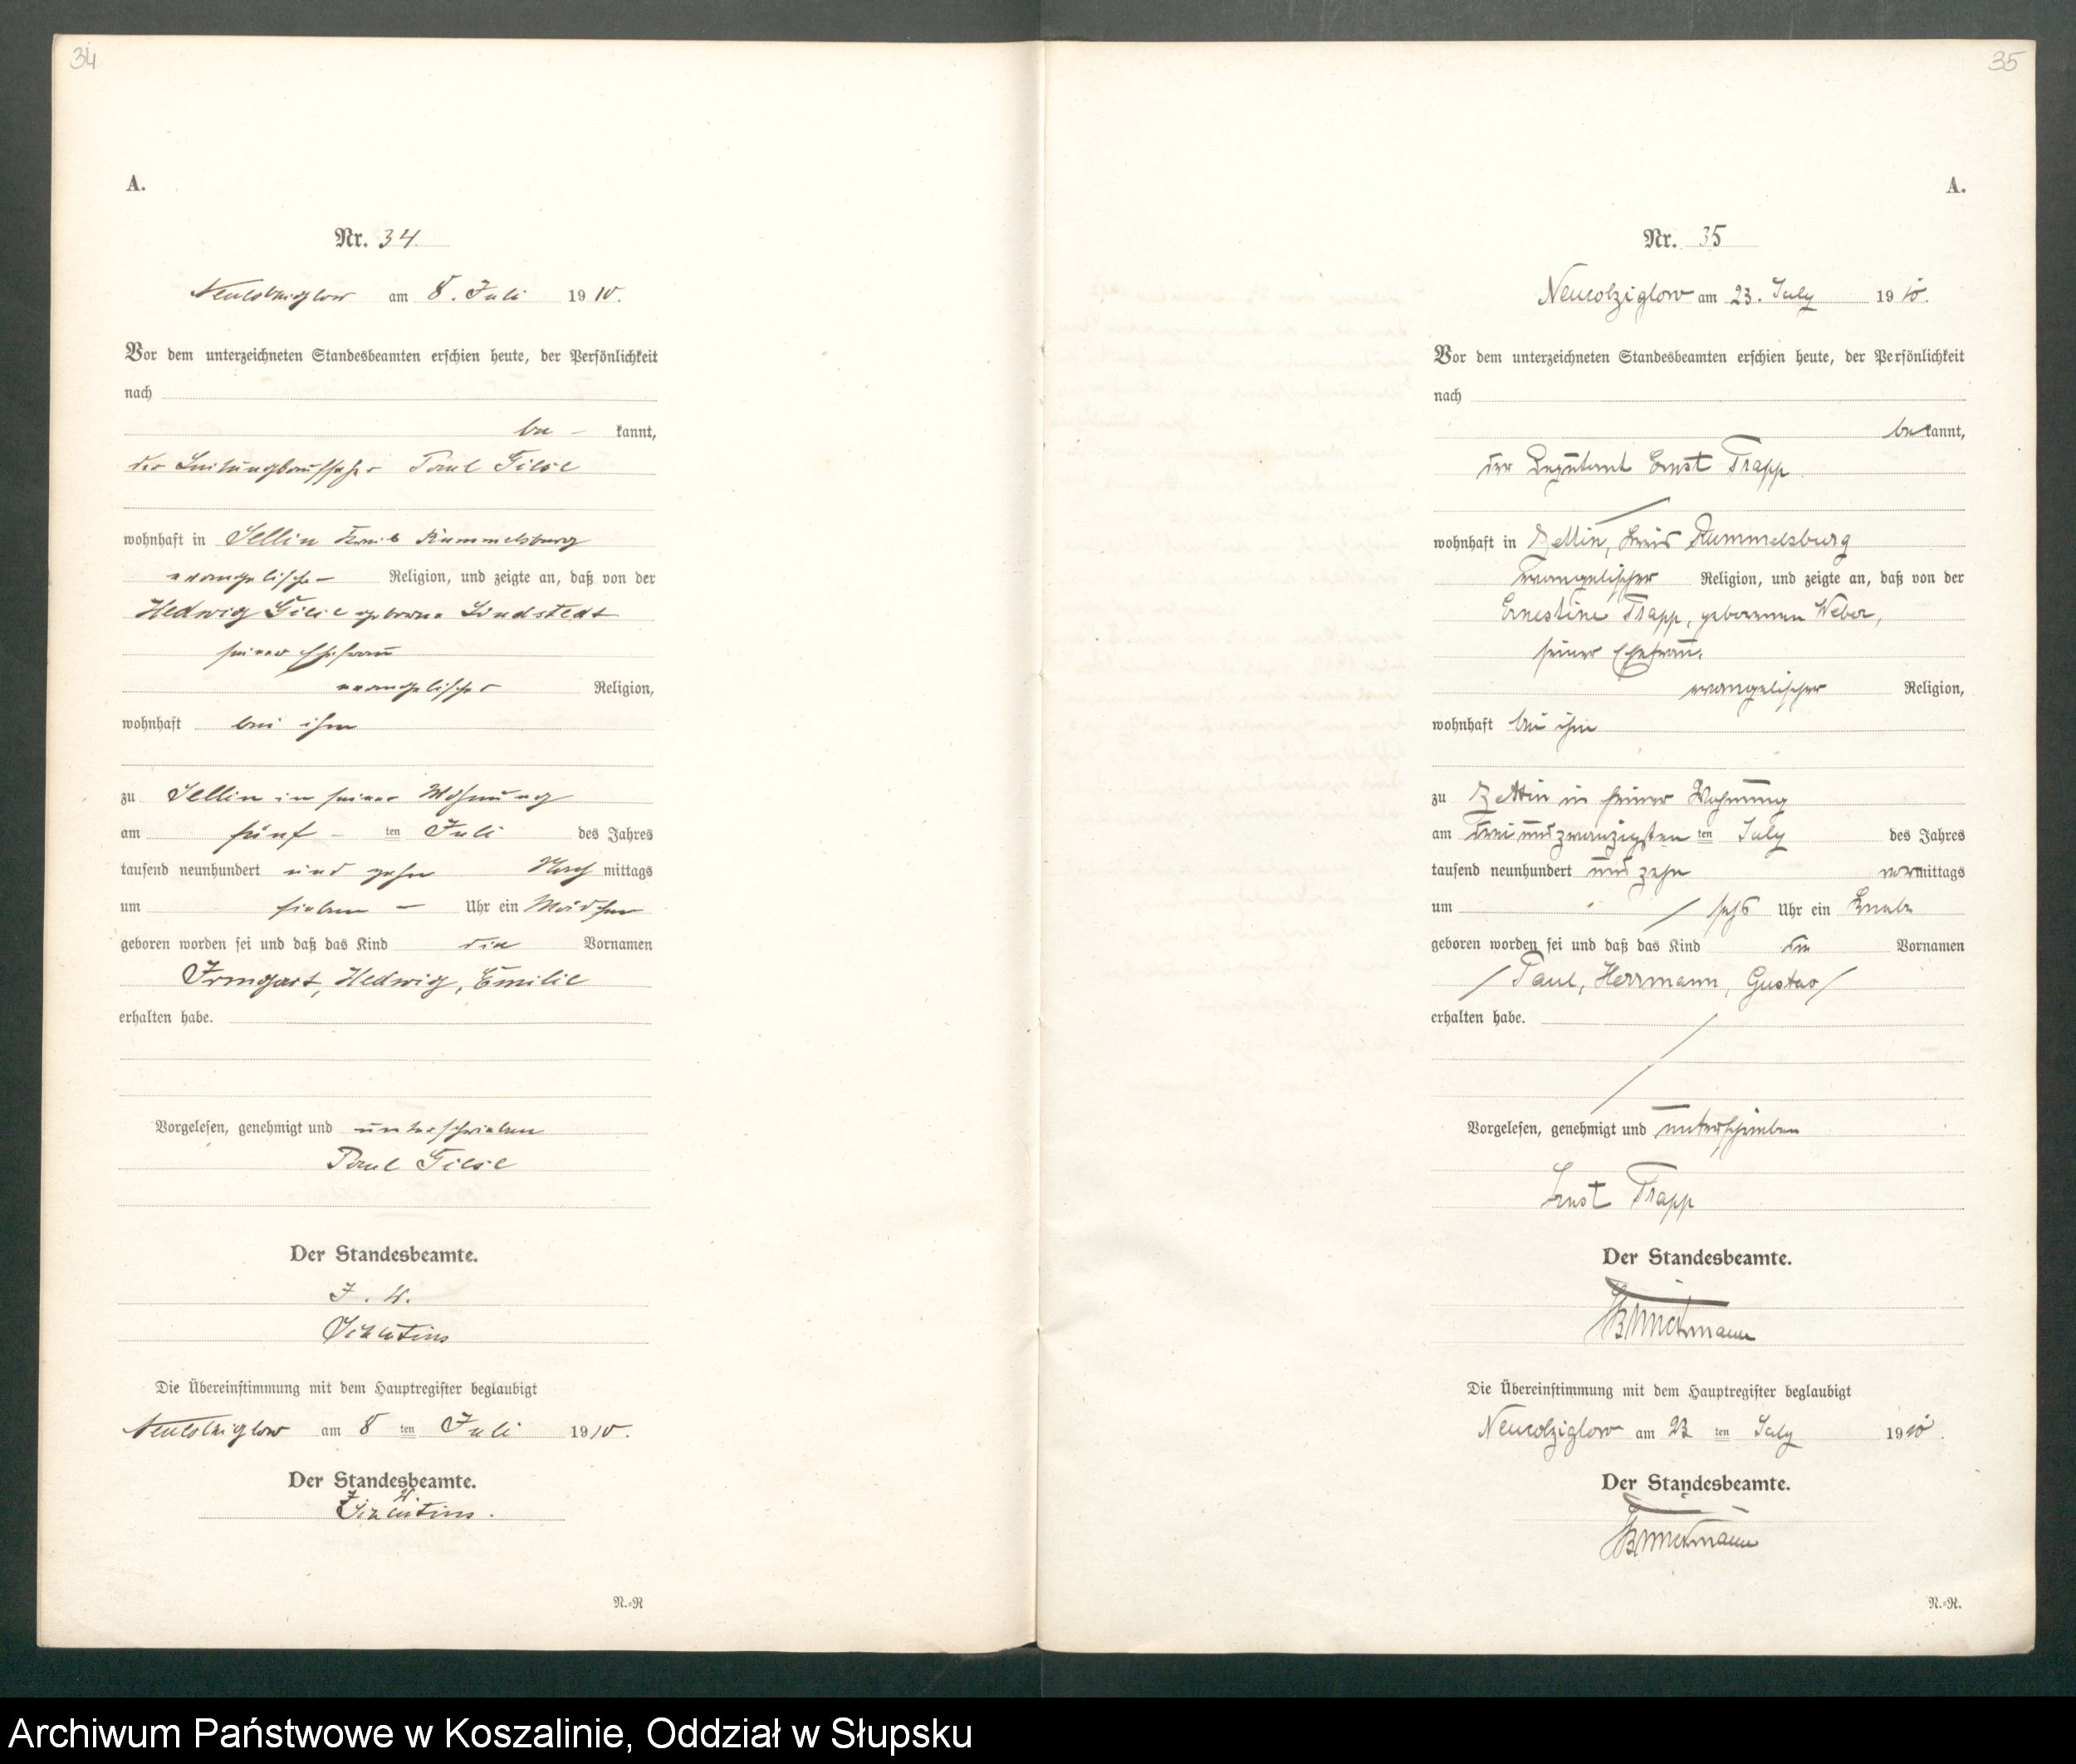 34
A.
Nr. 34.
Neukolziglow am 8. Juli 1910.
Vor dem unterzeichneten Standesbeamten erschien heute, der Persönlichkeit
nach
be – kannt,
der Paul Giese
wohnhaft in Sellin Kreis Rummelsburg
evangelische – Religion, und zeigte an, daß von der
Hedwig Giese geborene Lindstedt
seiner Ehefrau
evangelischer Religion,
wohnhaft bei ihm
zu Sellin in seiner Wohnung
am fünf – ten Juli des Jahres
tausend neunhundert und zehn Nach mittags
um sieben – Uhr ein Mädchen
geboren worden sei und daß das Kind die Vornamen
Irmgart, Hedwig, Emilie
erhalten habe.
Vorgelesen, genehmigt und unterschrieben
Paul Giese
Der Standesbeamte.
J. V.
Die Übereinstimmung mit dem Hauptregister beglaubigt
Neukolziglow am 8 ten Juli 1910.
Der Standesbeamte.
N.-R
35
A.
Nr. 35
Neucolziglow am 23. July 1910.
Vor dem unterzeichneten Standesbeamten erschien heute, der Persönlichkeit
nach
bekannt,
der Ernst Trapp
wohnhaft in Zettin, Kreis Rummelsburg
evangelischer Religion, und zeigte an, daß von der
Ernestine Trapp, geborenen Weber,
seiner Ehefrau,
evangelischer Religion,
wohnhaft bei ihm
zu Zettin in seiner Wohnung
am dreiundzwanzigsten ten July des Jahres
tausend neunhundert und zehn vormittags
um / sechs Uhr ein Knabe
geboren worden sei und daß das Kind die Vornamen
/ Paul, Herrmann, Gustav /
erhalten habe.
Vorgelesen, genehmigt und unterschrieben
Ernst Trapp
Der Standesbeamte.
Die Übereinstimmung mit dem Hauptregister beglaubigt
Neucolziglow am 23 ten July 1910.
Der Standesbeamte.
N.-R.
Archiwum Państwowe w Koszalinie, Oddział w Słupsku